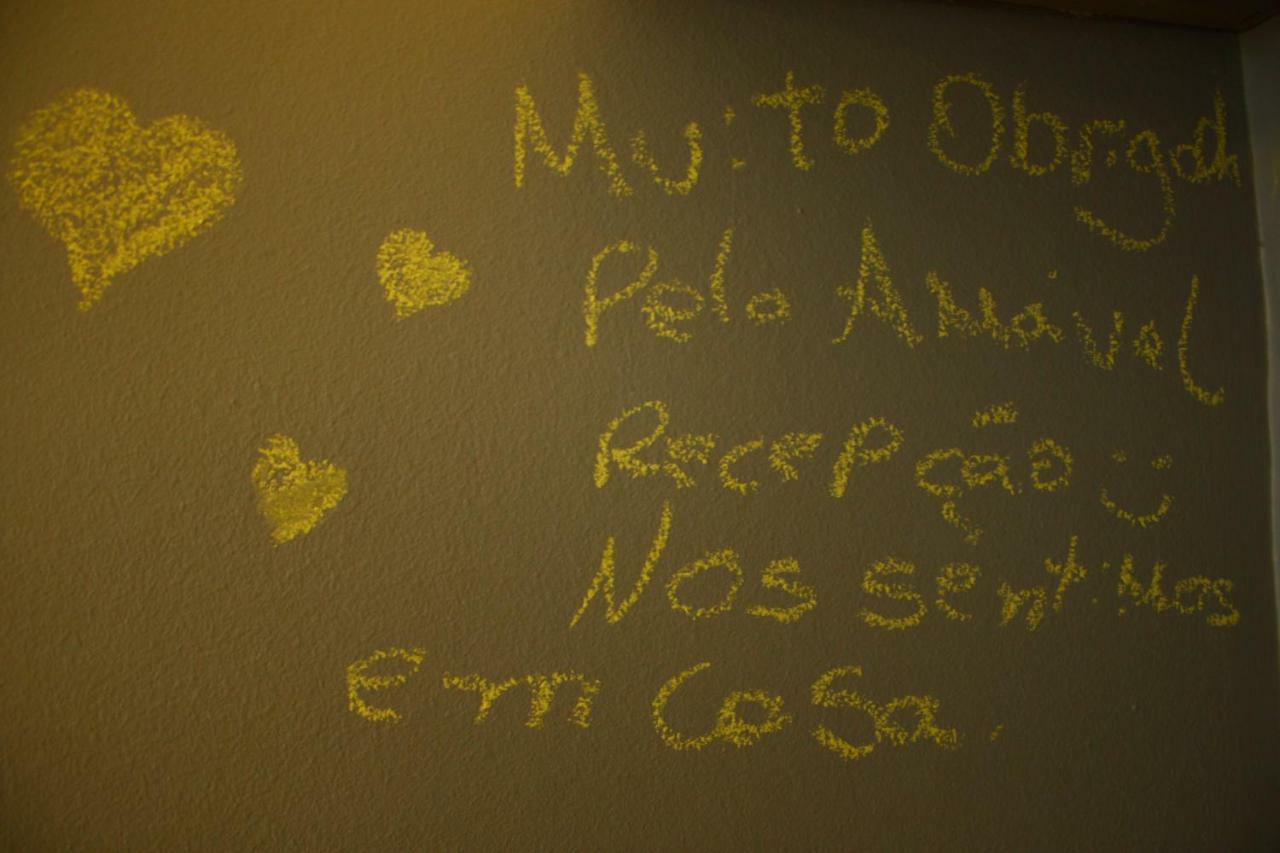 Muito Obrigada
Pela Amável
Recepção :)
Nos sentimos
em Casa.